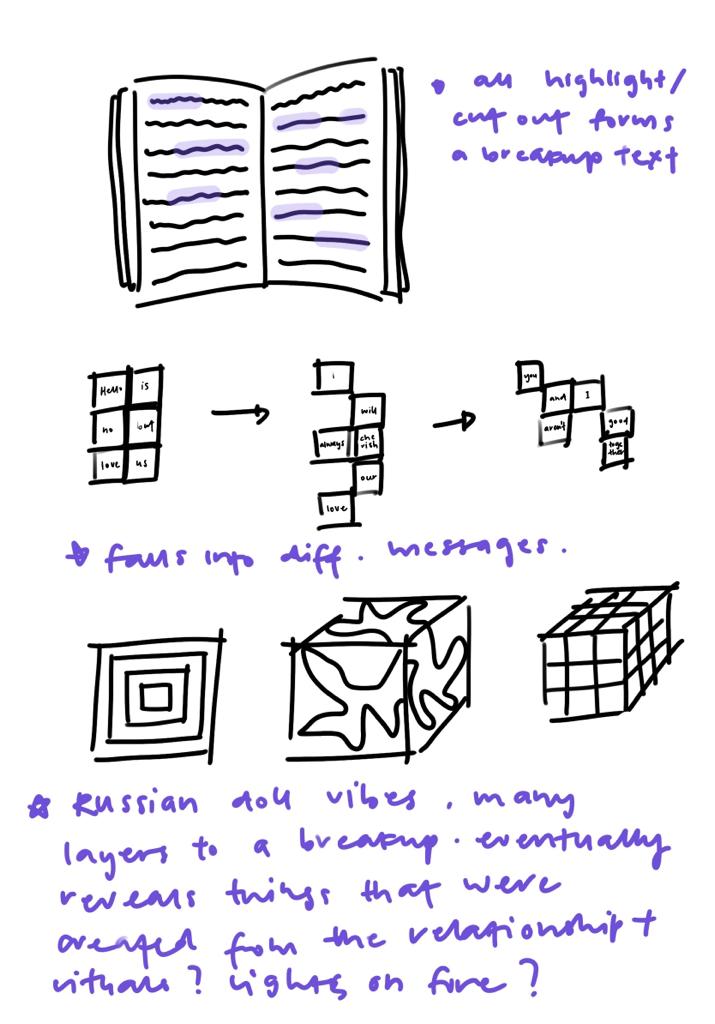 all highlight/
cut out forms
a breakup text
Hello is
no but
love us
i
will
always che
rish
our
love
you
and I
aren't good
toge
ther
falls into diff. messages.
Russian doll vibes, many
layers to a breakup. eventually
reveals things that were
created from the relationship +
rituals? lights on fire?